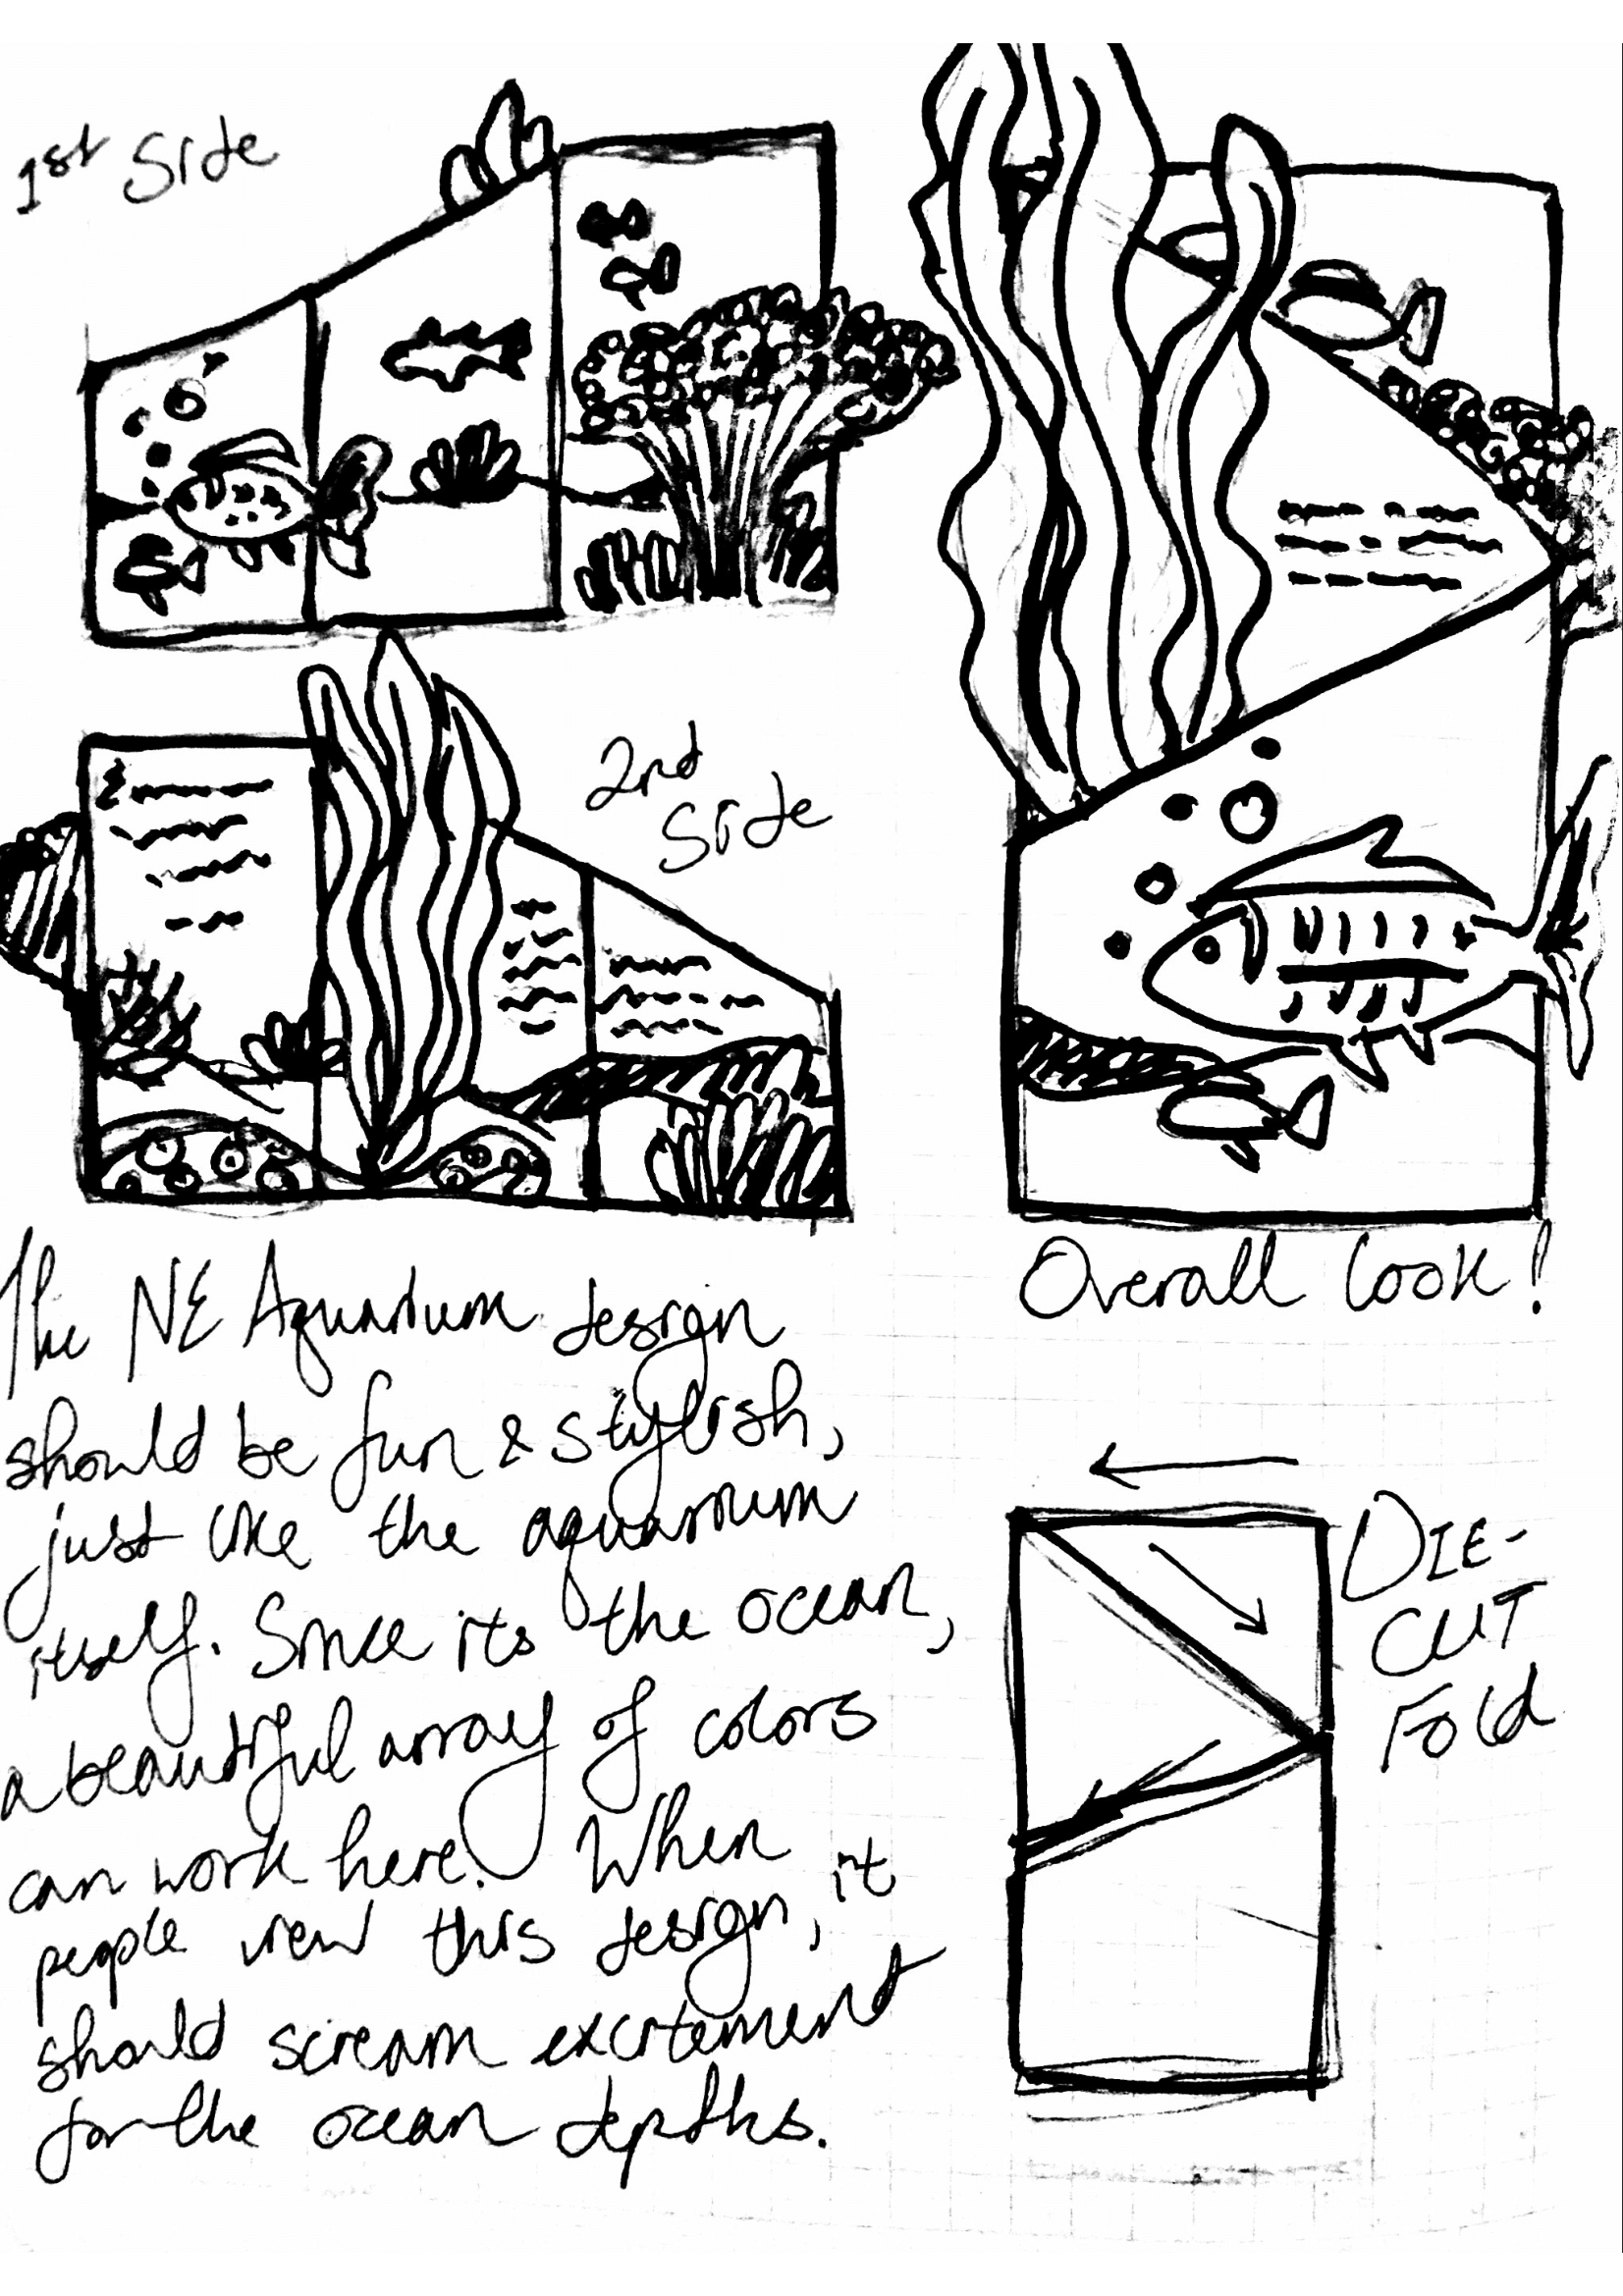 1st Side
2nd
Side
Overall look!
The NE Aquarium design
should be fun & stylish,
just like the aquarium
itself. Since its the ocean,
a beautiful array of colors
can work here. When
people view this design, it
should scream excitement
for the ocean depths.
DIE-
CUT
Fold